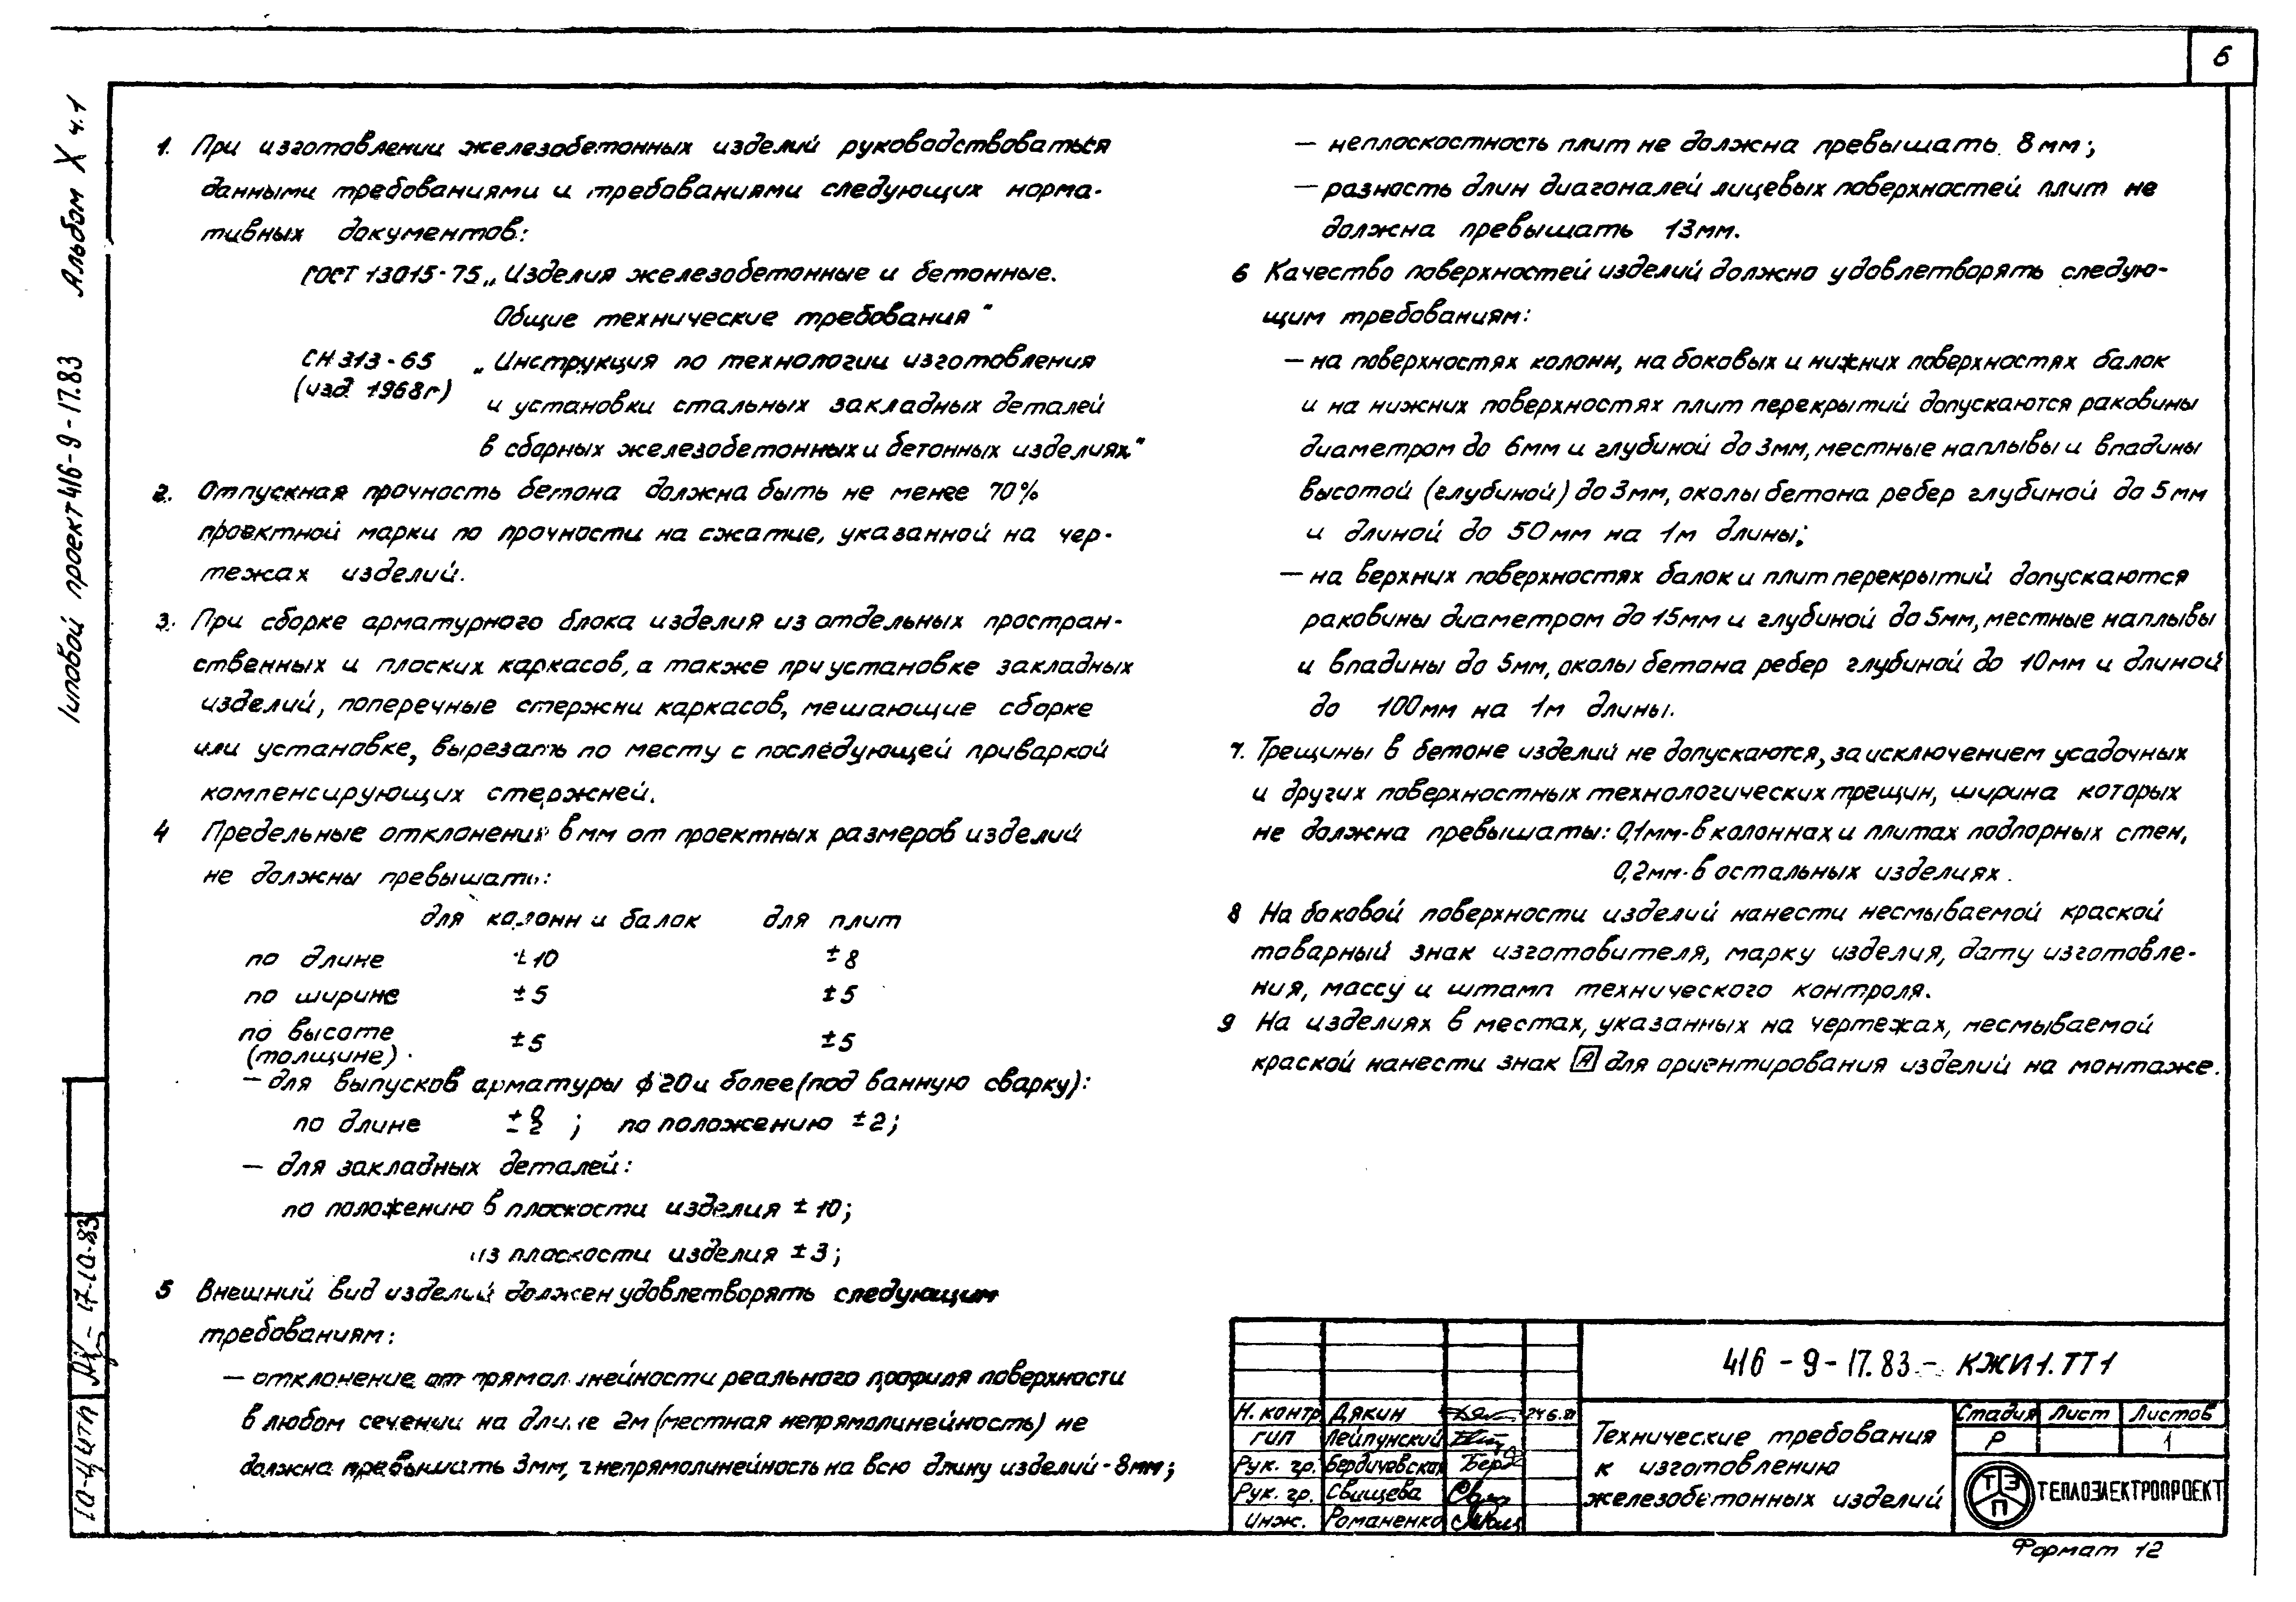 6
Типовой проект 416-9-17.83 Альбом X ч.1
1. При изготовлении железобетонных изделий руководствоваться
данными требованиями и требованиями следующих норма-
тивных документов:
ГОСТ 13015-75 „Изделия железобетонные и бетонные.
Общие технические требования“
СН 313-65 „Инструкция по технологии изготовления
(изд. 1968г) и установки стальных закладных деталей
в сборных железобетонных и бетонных изделиях“
2. Отпускная прочность бетона должна быть не менее 70%
проектной марки по прочности на сжатие, указанной на чер-
тежах изделий.
3. При сборке арматурного блока изделия из отдельных простран-
ственных и плоских каркасов, а также при установке закладных
изделий, поперечные стержни каркасов, мешающие сборке
или установке, вырезать по месту с последующей приваркой
компенсирующих стержней.
4 Предельные отклонения в мм от проектных размеров изделий
не должны превышать:
для колонн и балок для плит
по длине ±10 ±8
по ширине ±5 ±5
по высоте
(толщине) ±5 ±5
— для выпусков арматуры ϕ20 и более (под ванную сварку):
по длине +0 −2 ; по положению ±2;
— для закладных деталей:
по положению в плоскости изделия ±10;
из плоскости изделия ±3;
5 Внешний вид изделий должен удовлетворять следующим
требованиям:
— отклонение от прямолинейности реального профиля поверхности
в любом сечении на длине 2м (местная непрямолинейность) не
должна превышать 3мм, непрямолинейность на всю длину изделий - 8мм;
— неплоскостность плит не должна превышать 8мм;
— разность длин диагоналей лицевых поверхностей плит не
должна превышать 13мм.
6 Качество поверхностей изделий должно удовлетворять следую-
щим требованиям:
— на поверхностях колонн, на боковых и нижних поверхностях балок
и на нижних поверхностях плит перекрытий допускаются раковины
диаметром до 6мм и глубиной до 3мм, местные наплывы и впадины
высотой (глубиной) до 3мм, околы бетона ребер глубиной до 5мм
и длиной до 50мм на 1м длины;
— на верхних поверхностях балок и плит перекрытий допускаются
раковины диаметром до 15мм и глубиной до 5мм, местные наплывы
и впадины до 5мм, околы бетона ребер глубиной до 10мм и длиной
до 100мм на 1м длины.
7. Трещины в бетоне изделий не допускаются, за исключением усадочных
и других поверхностных технологических трещин, ширина которых
не должна превышать: 0,1мм-в колоннах и плитах подпорных стен,
0,2мм-в остальных изделиях.
8 На боковой поверхности изделий нанести несмываемой краской
товарный знак изготовителя, марку изделия, дату изготовле-
ния, массу и штамп технического контроля.
9 На изделиях в местах, указанных на чертежах, несмываемой
краской нанести знак А для ориентирования изделий на монтаже.
416-9-17.83.- КЖИ1.ТТ1
Н. контр Дякин
ГИП Лейпунский
Рук. гр. Бердичевская
Рук. гр. Свищева
Инж. Романенко
Технические требования
к изготовлению
железобетонных изделий
Стадия Лист Листов
Р 1
ТЭП ТЕПЛОЭЛЕКТРОПРОЕКТ
Формат 12
17-10-83